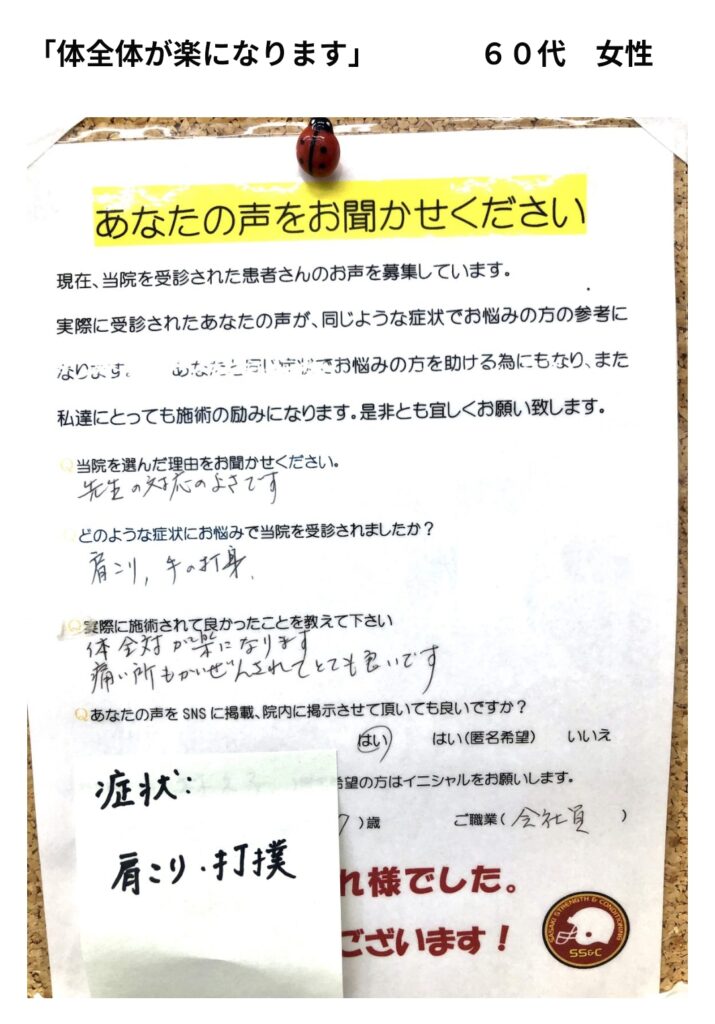 「体全体が楽になります」 ６０代 女性
あなたの声をお聞かせください
現在、当院を受診された患者さんのお声を募集しています。
実際に受診されたあなたの声が、同じような症状でお悩みの方の参考に
なります。 あなたと同じ症状でお悩みの方を助ける為にもなり、また
私達にとっても施術の励みになります。是非とも宜しくお願い致します。
Q当院を選んだ理由をお聞かせください。
先生の対応のよさです
Qどのような症状にお悩みで当院を受診されましたか？
肩こり, 手の打身.
Q実際に施術されて良かったことを教えて下さい
体全対が楽になります
痛い所もかいぜんされてとても良いです
Qあなたの声をSNSに掲載、院内に掲示させて頂いても良いですか？
はい はい（匿名希望） いいえ
希望の方はイニシャルをお願いします。
）歳 ご職業（ 会社員 ）
症状:
肩こり・打撲
れ様でした。
ございます！
SASAKI STRENGTH & CONDITIONING
SS&C